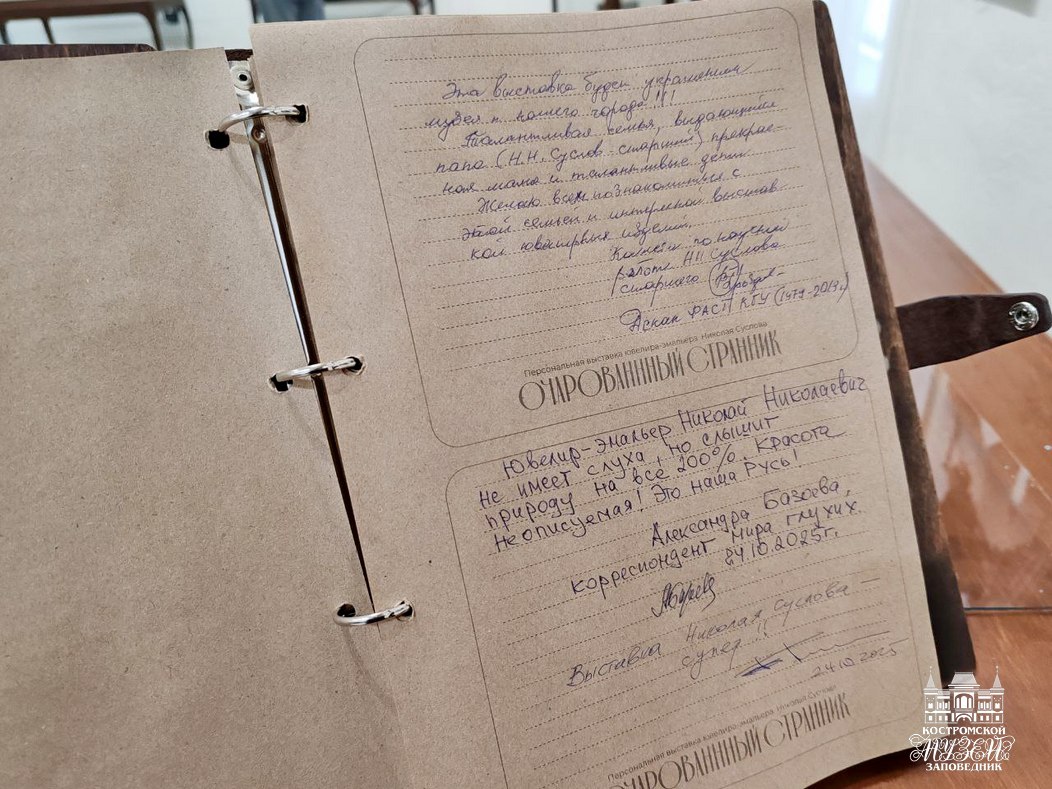 Эта выставка будет украшением
музея и нашего города!!!
Талантливая семья, выдающийся
папа (Н.Н. Суслов старший) прекрас-
ная мама и талантливые дети
Желаю всем познакомиться с
этой семьей и интересной выстав-
кой ювелирных изделий.
Коллега по научной
работе НН Суслова
старшего
Декан ФАСП КГУ (1979-2019г)
Персональная выставка ювелира-эмальера Николая Суслова
ОЧАРОВАНННЫЙ СТРАННИК
Ювелир-эмальер Николай Николаевич
не имеет слуха, но слышит
природу на все 200%. Красота
неописуемая! Это наша Русь!
Александра Базоева,
корреспондент Мира глухих.
24.10.2025г.
Выставка Николая Суслова —
супер!!
24.10 2025
Персональная выставка ювелира-эмальера Николая Суслова
ОЧАРОВАНННЫЙ СТРАННИК
КОСТРОМСКОЙ
МУЗЕЙ
ЗАПОВЕДНИК